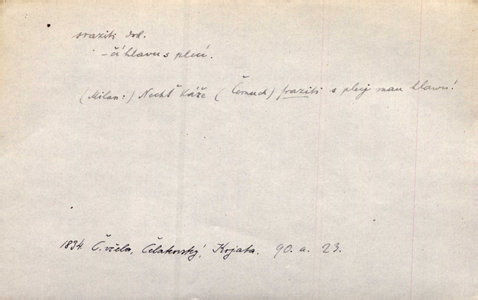 sraziti dok.
– čí hlavu s plecí.
(Milan:) Nechť káže (Černuch) sraziti s plecý mau hlawu!
1834 Č. včela, Čelakovský, Krojata. 90. a. 23.